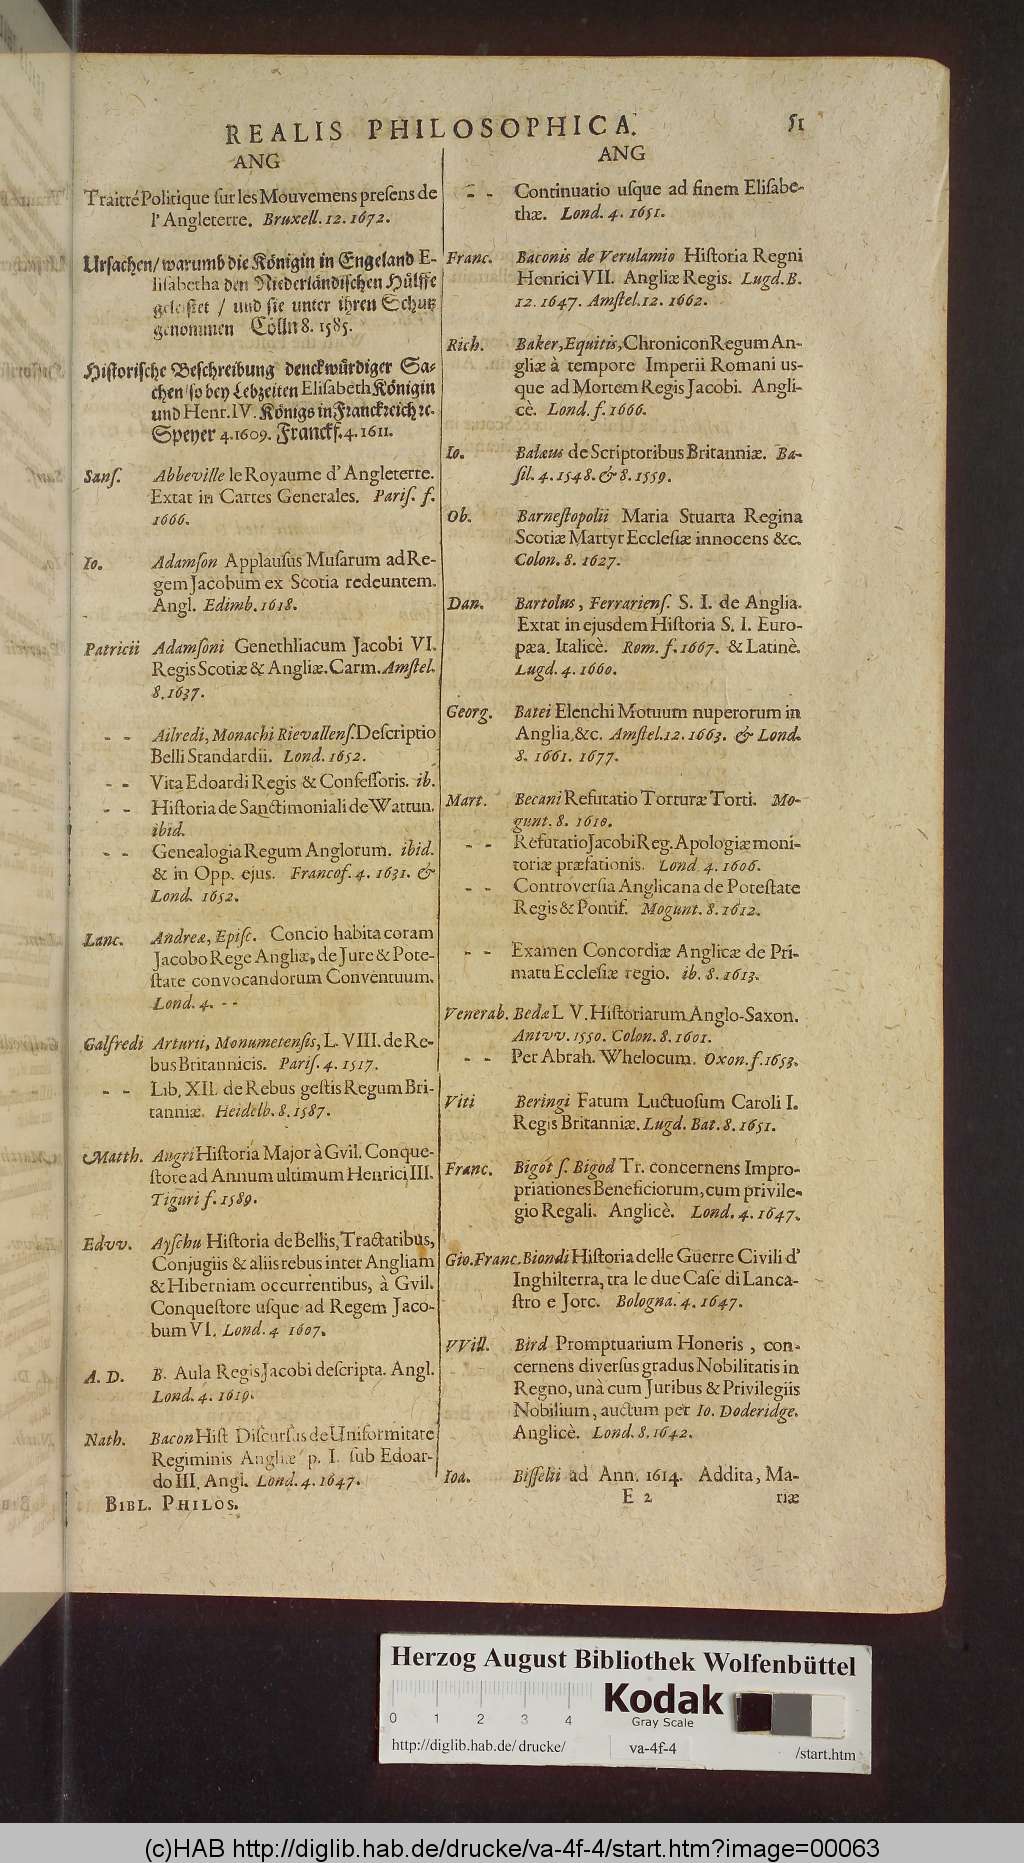 REALIS PHILOSOPHICA. 51
ANG
Traitté Politique ſur les Mouvemens preſens de
l'Angleterre. Bruxell. 12. 1672.
Urſachen / warumb die Königin in Engeland E-
liſabetha den Niederländiſchen Hülffe
geleiſtet / und ſie unter ihren Schutz
genommen Cölln 8. 1585.
Hiſtoriſche Beſchreibung denckwürdiger Sa-
chen / ſo bey Lebzeiten Eliſabeth Königin
und Henr. IV. Königs in Franckreich ꝛc.
Speyer 4. 1609. Franckf. 4. 1611.
Sanſ. Abbeville le Royaume d'Angleterre.
Extat in Cartes Generales. Pariſ. f.
1666.
Io. Adamſon Applauſus Muſarum ad Re-
gem Jacobum ex Scotia redeuntem.
Angl. Edimb. 1618.
Patricii Adamſoni Genethliacum Jacobi VI.
Regis Scotiæ & Angliæ. Carm. Amſtel.
8. 1637.
- - Ailredi, Monachi Rievallenſ. Deſcriptio
Belli Standardii. Lond. 1652.
- - Vita Edoardi Regis & Confeſſoris. ib.
- - Hiſtoria de Sanctimoniali de Wattun.
ibid.
- - Genealogia Regum Anglorum. ibid.
& in Opp. ejus. Francof. 4. 1631. &
Lond. 1652.
Lanc. Andreæ, Epiſc. Concio habita coram
Jacobo Rege Angliæ, de Jure & Pote-
ſtate convocandorum Conventuum.
Lond. 4. - -
Galfredi Arturii, Monumetenſis, L. VIII. de Re-
bus Britannicis. Pariſ. 4. 1517.
- - Lib. XII. de Rebus geſtis Regum Bri-
tanniæ. Heidelb. 8. 1587.
Matth. Angri Hiſtoria Major à Gvil. Conque-
ſtore ad Annum ultimum Henrici III.
Tiguri f. 1589.
Edvv. Ayſchu Hiſtoria de Bellis, Tractatibus,
Conjugiis & aliis rebus inter Angliam
& Hiberniam occurrentibus, à Gvil.
Conqueſtore uſque ad Regem Jaco-
bum VI. Lond. 4 1607.
A. D. B. Aula Regis Jacobi deſcripta. Angl.
Lond. 4. 1619.
Nath. Bacon Hiſt Diſcurſus de Uniformitate
Regiminis Angliæ p. I. ſub Edoar-
do III. Angl. Lond. 4. 1647.
BIBL. PHILOS.
ANG
- - Continuatio uſque ad finem Eliſabe-
thæ. Lond. 4. 1651.
Franc. Baconis de Verulamio Hiſtoria Regni
Henrici VII. Angliæ Regis. Lugd. B.
12. 1647. Amſtel. 12. 1662.
Rich. Baker, Equitis, Chronicon Regum An-
gliæ à tempore Imperii Romani us-
que ad Mortem Regis Jacobi. Angli-
cè. Lond. f. 1666.
Io. Balæus de Scriptoribus Britanniæ. Ba-
ſil. 4. 1548. & 8. 1559.
Ob. Barneſtopolii Maria Stuarta Regina
Scotiæ Martyr Eccleſiæ innocens &c.
Colon. 8. 1627.
Dan. Bartolus, Ferrarienſ. S. I. de Anglia.
Extat in ejusdem Hiſtoria S. I. Euro-
pæa. Italicè. Rom. f. 1667. & Latinè.
Lugd. 4. 1660.
Georg. Batei Elenchi Motuum nuperorum in
Anglia, &c. Amſtel. 12. 1663. & Lond.
8. 1661. 1677.
Mart. Becani Refutatio Torturæ Torti. Mo-
gunt. 8. 1610.
- - Refutatio Jacobi Reg. Apologiæ moni-
toriæ præfationis. Lond. 4. 1606.
- - Controverſia Anglicana de Poteſtate
Regis & Pontif. Mogunt. 8. 1612.
- - Examen Concordiæ Anglicæ de Pri-
matu Eccleſiæ regio. ib. 8. 1613.
Venerab. Bedæ L V. Hiſtoriarum Anglo-Saxon.
Antvv. 1550. Colon. 8. 1601.
- - Per Abrah. Whelocum. Oxon. f. 1653.
Viti Beringi Fatum Luctuoſum Caroli I.
Regis Britanniæ. Lugd. Bat. 8. 1651.
Franc. Bigot ſ. Bigod Tr. concernens Impro-
priationes Beneficiorum, cum privile-
gio Regali. Anglicè. Lond. 4. 1647.
Gio. Franc. Biondi Hiſtoria delle Guerre Civili d'
Inghilterra, tra le due Caſe di Lanca-
ſtro e Jorc. Bologna. 4. 1647.
VVill. Bird Promptuarium Honoris, con-
cernens diverſus gradus Nobilitatis in
Regno, unà cum Juribus & Privilegiis
Nobilium, auctum per Io. Doderidge.
Anglicè. Lond. 8. 1642.
Ioa. Biſſelii ad Ann. 1614. Addita, Ma-
E 2 riæ
Herzog August Bibliothek Wolfenbüttel
Kodak
Gray Scale
0 1 2 3 4
http://diglib.hab.de/drucke/ va-4f-4 /start.htm
(c)HAB http://diglib.hab.de/drucke/va-4f-4/start.htm?image=00063